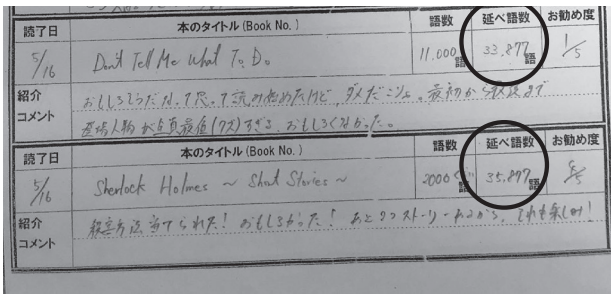 読了日 本のタイトル(Book No.) 語数 延べ語数 お勧め度
5/16 Don't Tell Me What To Do 11,000語 33,877語 1/5
紹介コメント おもしろそうだなって思って読み始めたけど、ダメだこりゃ。最初から最後まで
登場人物が点(クズ)すぎる。おもしろくなかった。
読了日 本のタイトル(Book No.) 語数 延べ語数 お勧め度
5/16 Sherlock Holmes ~ Short Stories ~ 2000語 35,877語 /5
紹介コメント 殺害方法当てられた!おもしろかった!あと2つストーリーあるから、それも楽しみ!